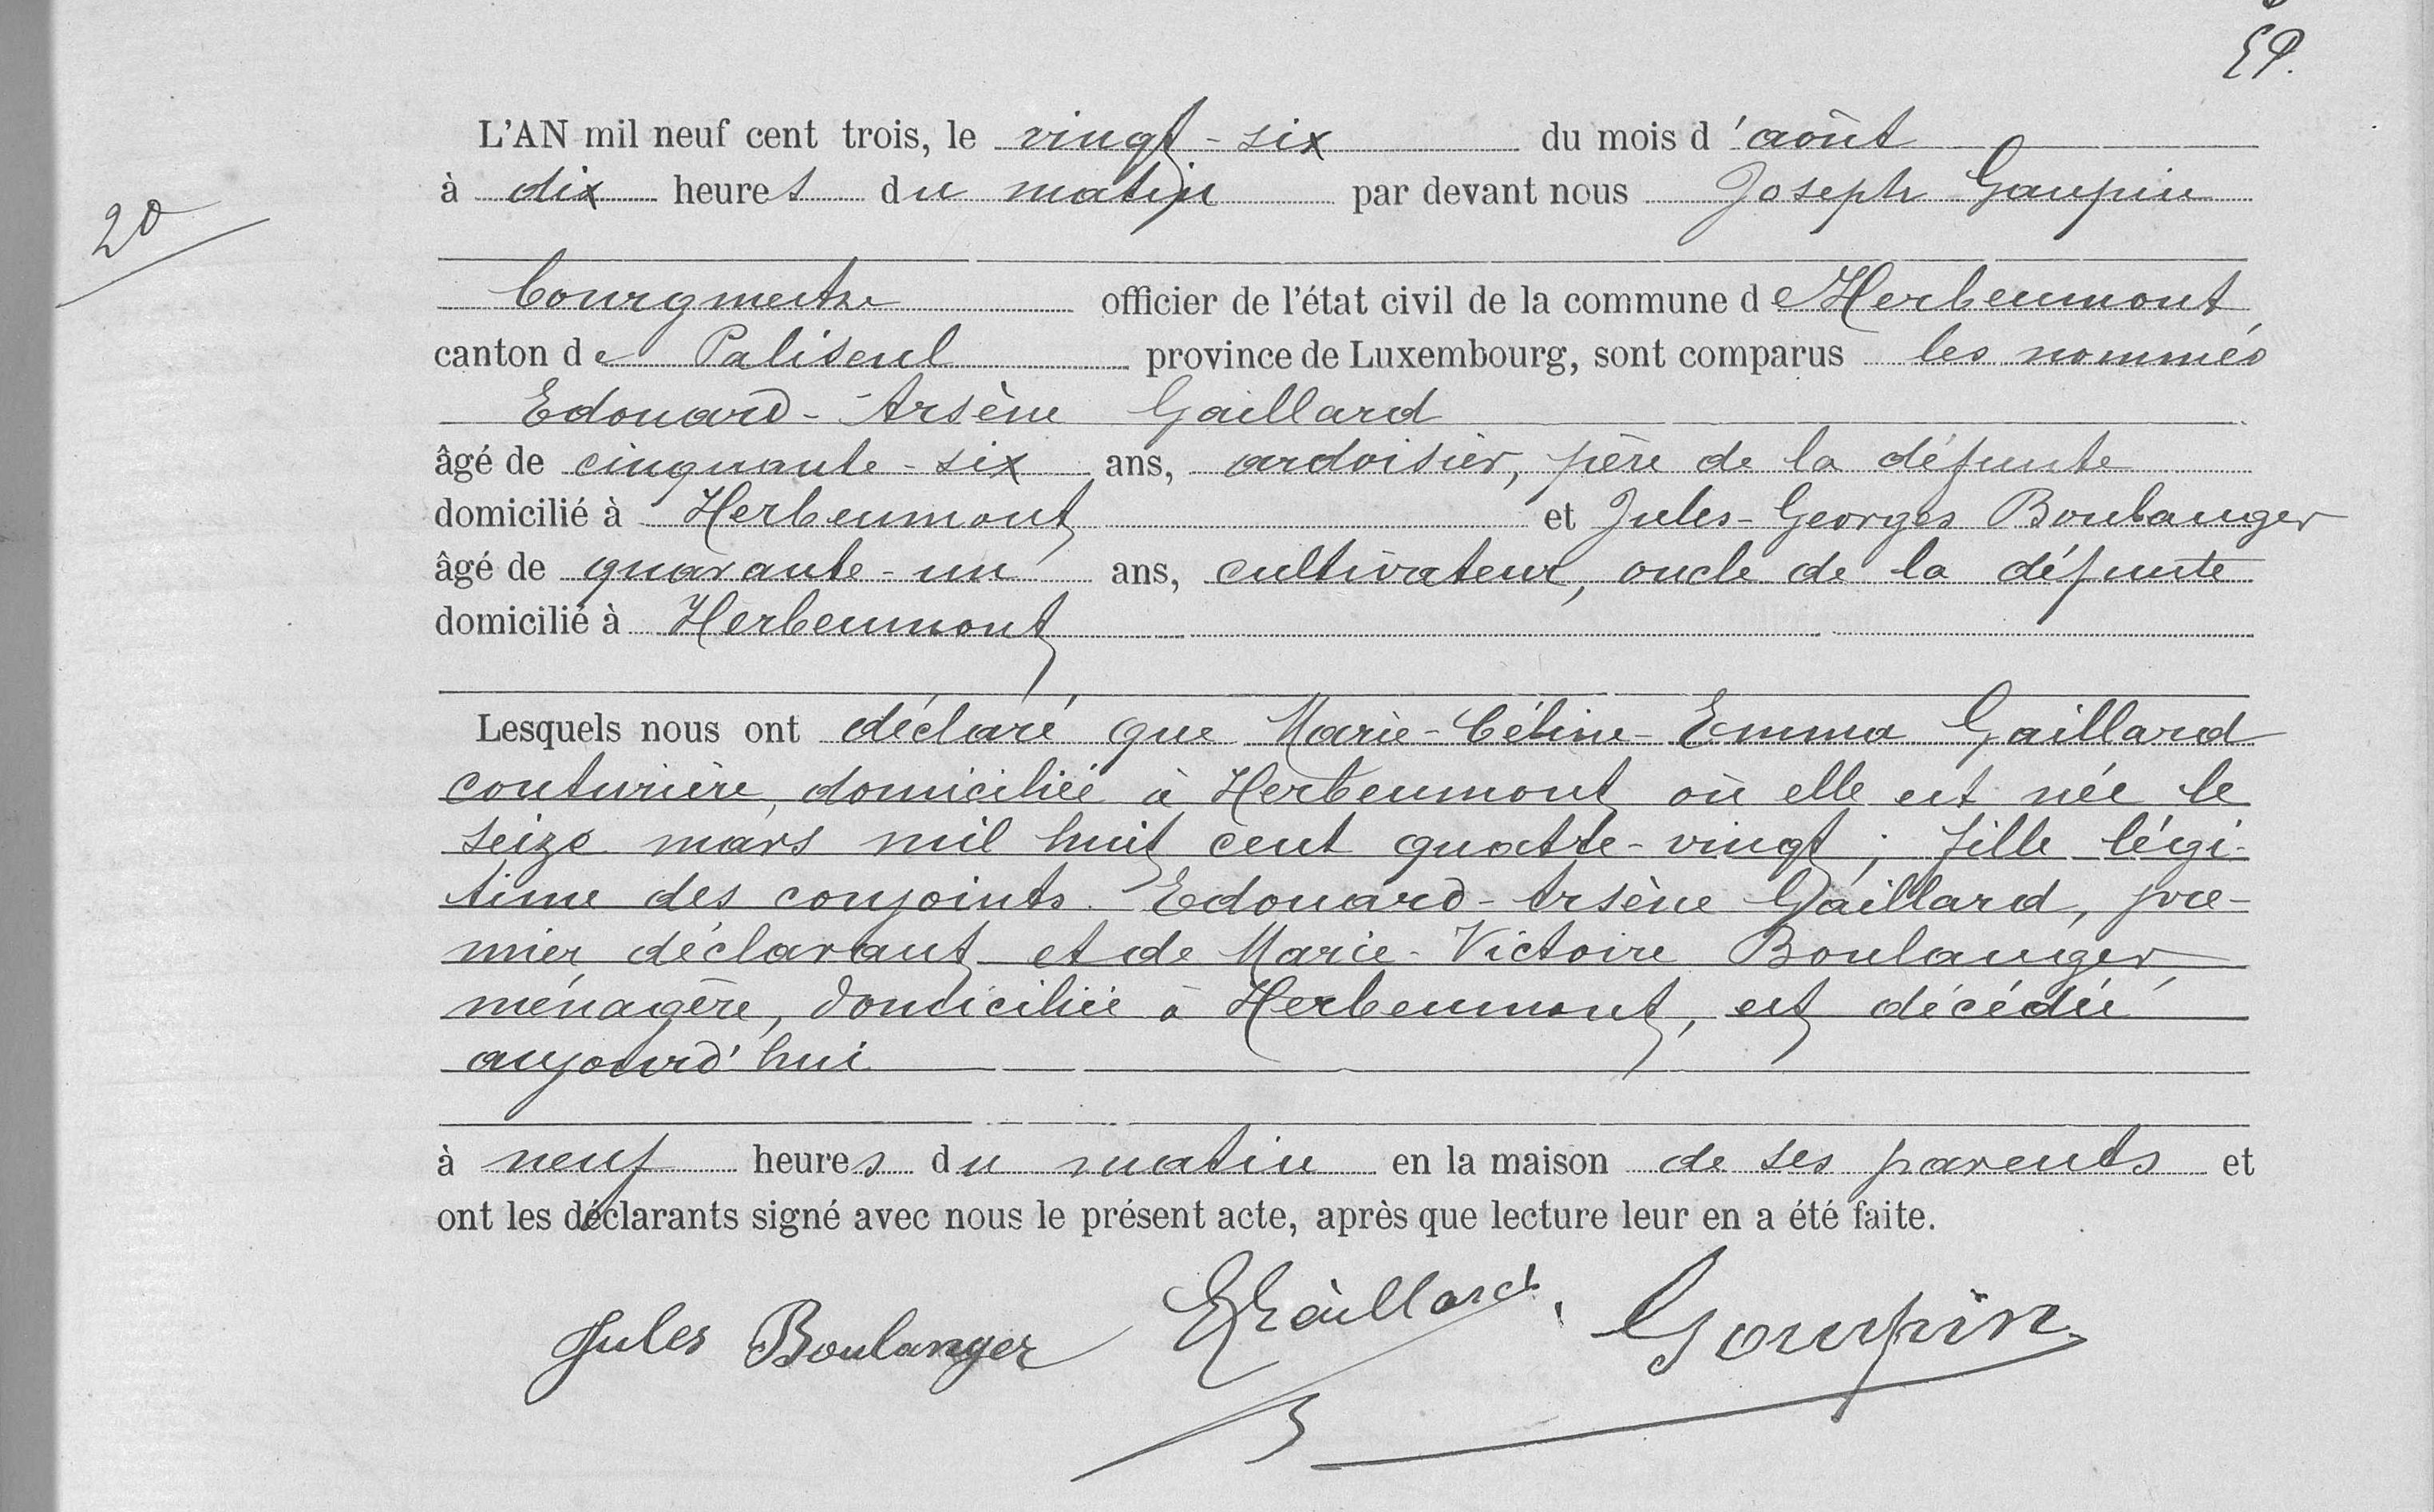 L'AN mil neuf cent trois, le vingt-six du mois d'août
à dix heures du matin par devant nous Joseph Gaupin
20
bourgmestre officier de l'état civil de la commune de Herbeumont
canton de Paliseul province de Luxembourg, sont comparus les nommés
Edouard-Arsène Gaillard
âgé de cinquante-six ans, ardoisier, père de la défunte
domicilié à Herbeumont et Jules-Georges Boulanger
âgé de quarante-un ans, cultivateur, oncle de la défunte
domicilié à Herbeumont
Lesquels nous ont déclaré que Marie-Céline-Emma Gaillard
couturière, domiciliée à Herbeumont où elle est née le
seize mars mil huit cent quatre-vingt ; fille légi-
time des conjoints Edouard-Arsène Gaillard, pre-
mier déclarant et de Marie-Victoire Boulanger,
ménagère, domiciliée à Herbeumont, est décédée
aujourd'hui
à neuf heures du matin en la maison de ses parents et
ont les déclarants signé avec nous le présent acte, après que lecture leur en a été faite.
Jules Boulanger EGaillard. Gaupin